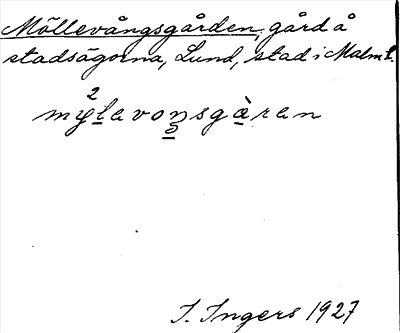 Möllevångsgården, gård å
stadsägorna, Lund, stad i Malm. L.
2
mylavonsgàran
I. Ingers 1927